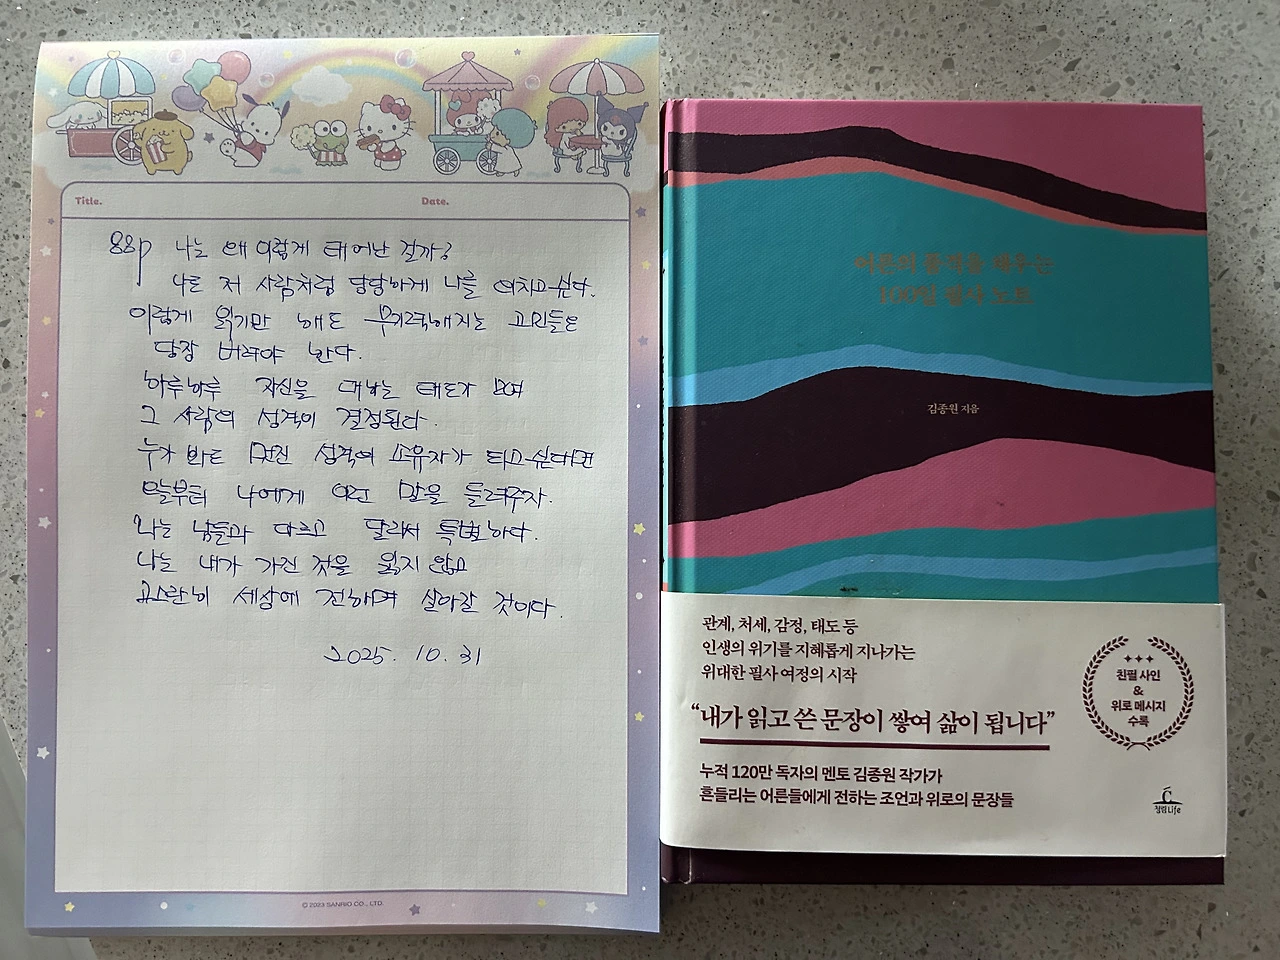 Title.
Date.
88p 나는 왜 이렇게 태어난 걸까?
나도 저 사람처럼 당당하게 나를 외치고 싶다.
이렇게 읽기만 해도 무기력해지는 고민들은
당장 버려야 한다.
하루하루 자신을 대하는 태도가 모여
그 사람의 성격이 결정된다.
누가 봐도 멋진 성격의 소유자가 되고 싶다면
오늘부터 나에게 이런 말을 들려주자.
나는 남들과 다르고 달라서 특별하다.
나는 내가 가진 것을 잃지 않고
고스란히 세상에 전하며 살아갈 것이다.
2025. 10. 31
© 2023 SANRIO CO., LTD.
어른의 품격을 채우는
100일 필사 노트
김종원 지음
관계, 처세, 감정, 태도 등
인생의 위기를 지혜롭게 지나가는
위대한 필사 여정의 시작
“내가 읽고 쓴 문장이 쌓여 삶이 됩니다”
누적 120만 독자의 멘토 김종원 작가가
흔들리는 어른들에게 전하는 조언과 위로의 문장들
친필 사인
&
위로 메시지
수록
청림Life